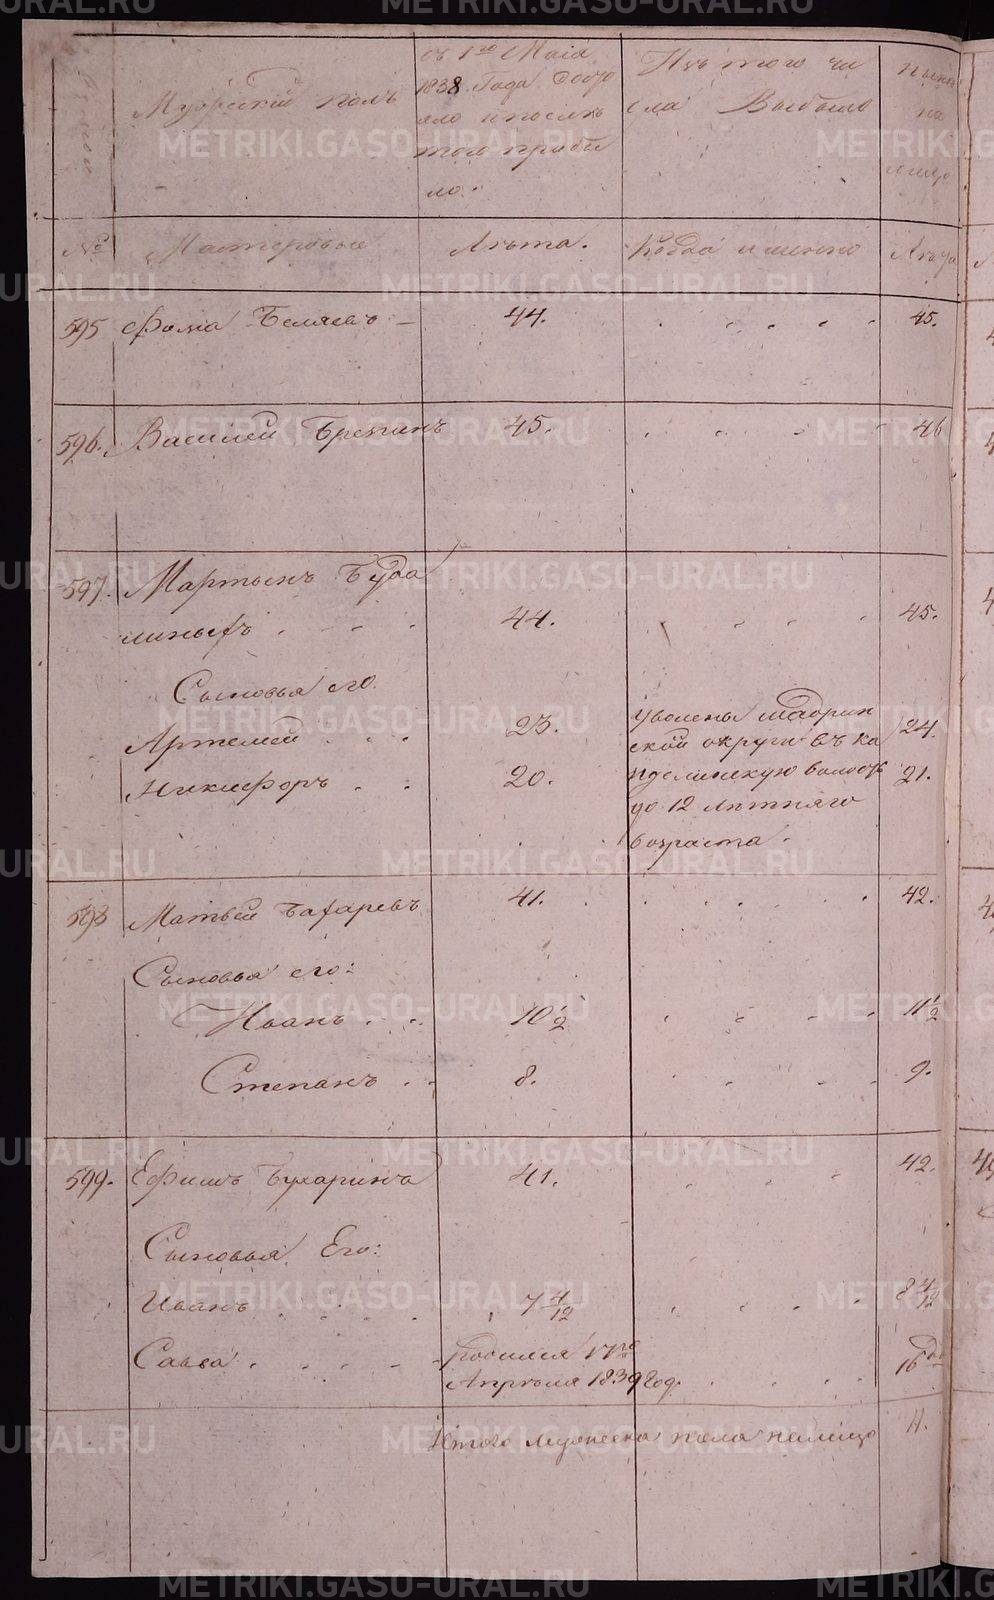 Мужескій полъ
съ 1го Маія
1838. Года Состо
яло и послѣ
того прибы
ло.
Изъ того чи
сла Выбыло
нынѣ
на
лицо
№
Мастеровые
Лѣта.
Когда и именно
Лѣта
595 Фома Беляевъ 44. 45.
596. Василей 45. 46
597. Мартынъ Буда
линыхъ 44. 45.
Сыновья его
Артемей 23. 24.
Никифоръ 20. 21.
уволены
ской округи въ ка
волость
до 12 лѣтняго
возраста.
598 Матвей Бахаревъ 41. 42.
Сыновья его:
Иванъ 10 1/2 11 1/2
Степанъ 8. 9.
599. Ефимъ Бухаринъ 41. 42.
Сыновья Его:
Иванъ 7 4/12 8 4/12
Савва родился 17го
Апрѣля 1839 год. 16 дн
Итого мужеска пола налицо 11.
METRIKI.GASO-URAL.RU